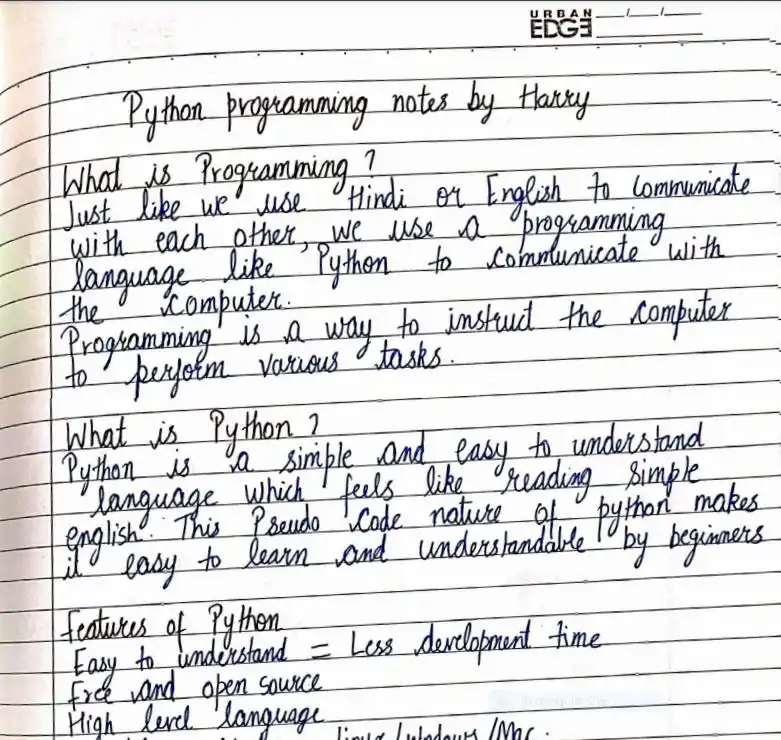 URBAN
EDGE
Python programming notes by Harry
What is Programming?
Just like we use Hindi or English to communicate
with each other, we use a programming
language like Python to communicate with
the computer.
Programming is a way to instruct the computer
to perform various tasks.
What is Python?
Python is a simple and easy to understand
language which feels like reading simple
english. This Pseudo Code nature of python makes
it easy to learn and understandable by beginners
features of Python
Easy to understand = Less development time
free and open source
High level language
linux/windows/Mac.